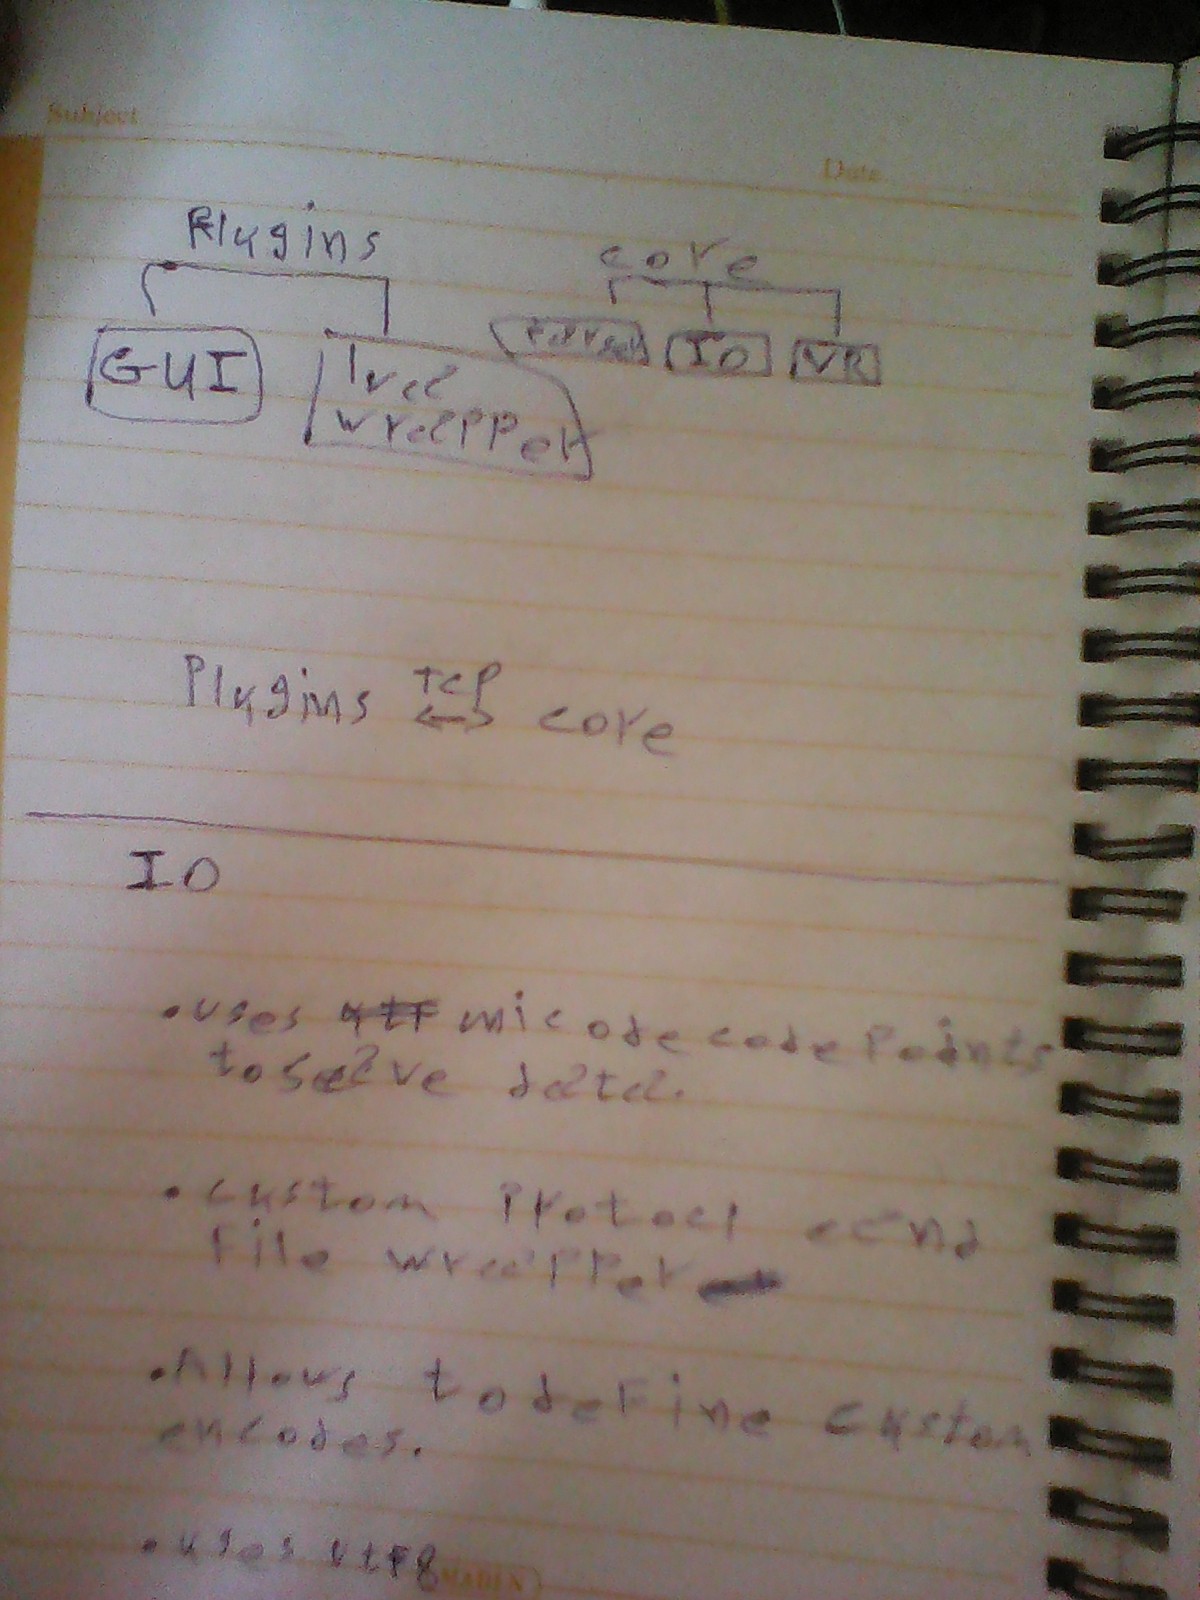 Subject
Date
Plugins
core
GUI
wrapper
IO
VR
Plugins TCP core
IO
• uses unicode code Points
to save data.
• custom Protocl and
File wrapper
• Allows to deFine custom
encodes.
• uses utF8